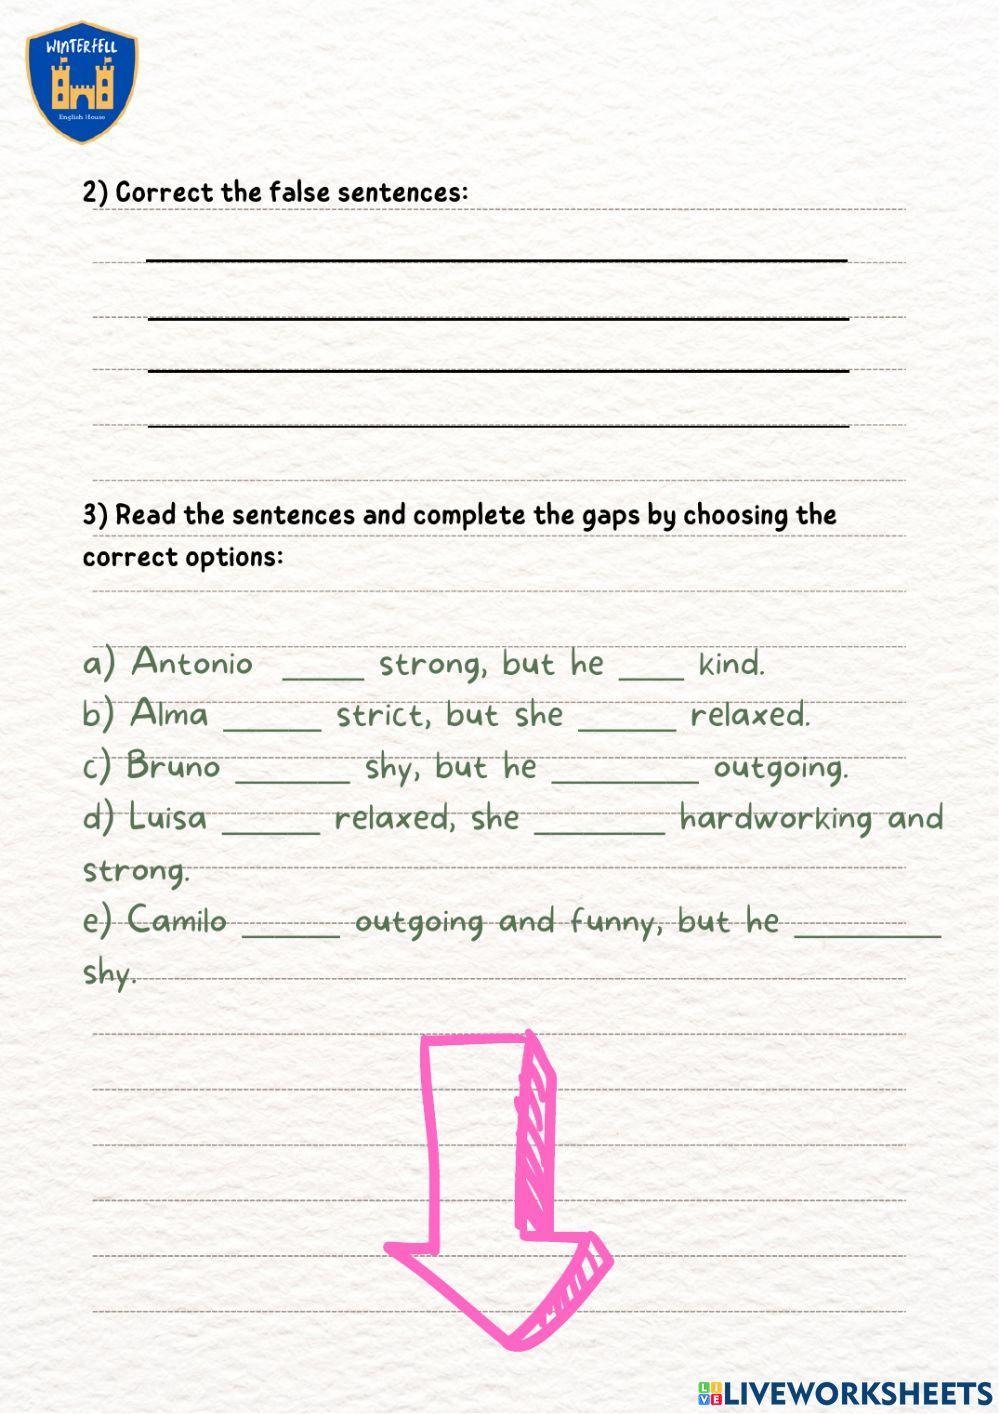 WINTERFELL
English House
2) Correct the false sentences:
3) Read the sentences and complete the gaps by choosing the
correct options:
a) Antonio _____ strong, but he ____ kind.
b) Alma ______ strict, but she ______ relaxed.
c) Bruno _______ shy, but he _________ outgoing.
d) Luisa ______ relaxed, she ________ hardworking and
strong.
e) Camilo ______ outgoing and funny, but he _________
shy.
LIVE LIVEWORKSHEETS